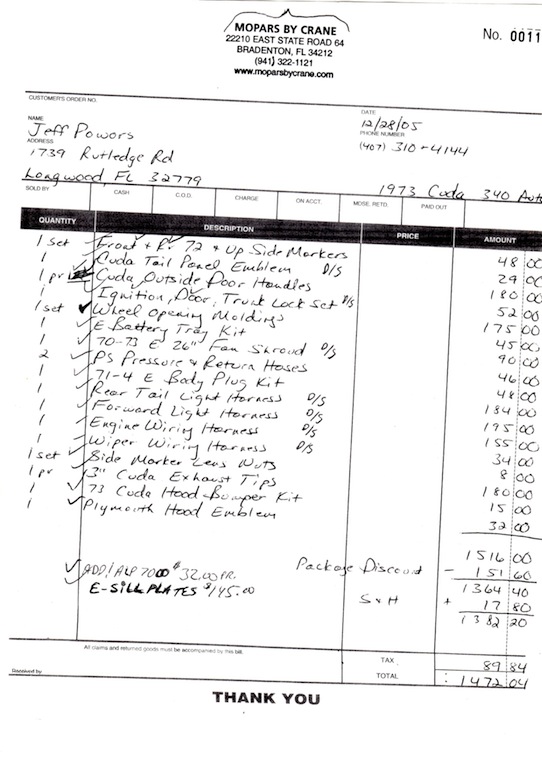 MOPARS BY CRANE
22210 EAST STATE ROAD 64
BRADENTON, FL 34212
(941) 322-1121
www.moparsbycrane.com
No. 0011
CUSTOMER'S ORDER NO.
DATE
12/28/05
NAME
Jeff Powors
PHONE NUMBER
(407) 310-4144
ADDRESS
1739 Rutledge Rd
Longwood, FL 32779
1973 Cuda 340 Auto
SOLD BY CASH C.O.D. CHARGE ON ACCT. MDSE. RETD. PAID OUT
QUANTITY DESCRIPTION PRICE AMOUNT
1 set Front & Rr 72 & Up Side Markers 48 00
1 Cuda Tail Panel Emblem D/S 29 00
1 pr Cuda Outside Door Handles 180 00
1 Ignition, Door, Trunk Lock Set D/S 52 00
1 set Wheel Opening Moldings 175 00
1 E Battery Tray Kit 45 00
1 70-73 E 26" Fan Shroud D/S 90 00
2 PS Pressure & Return Hoses 46 00
1 71-4 E Body Plug Kit 48 00
1 Rear Tail Light Harness D/S 184 00
1 Forward Light Harness D/S 195 00
1 Engine Wiring Harness D/S 155 00
1 Wiper Wiring Harness D/S 34 00
1 set Side Marker Lens Nuts 8 00
1 pr 3" Cuda Exhaust Tips 180 00
1 73 Cuda Hood Bumper Kit 15 00
1 Plymouth Hood Emblem 32 00
1516 00
Package Discount - 151 60
ADD! ALP 7000 $32.00 PR.
1364 40
E-SILL PLATES $145.00
S & H + 17 80
1382 20
All claims and returned goods must be accompanied by this bill.
TAX 89 84
Received by
TOTAL 1472 04
THANK YOU